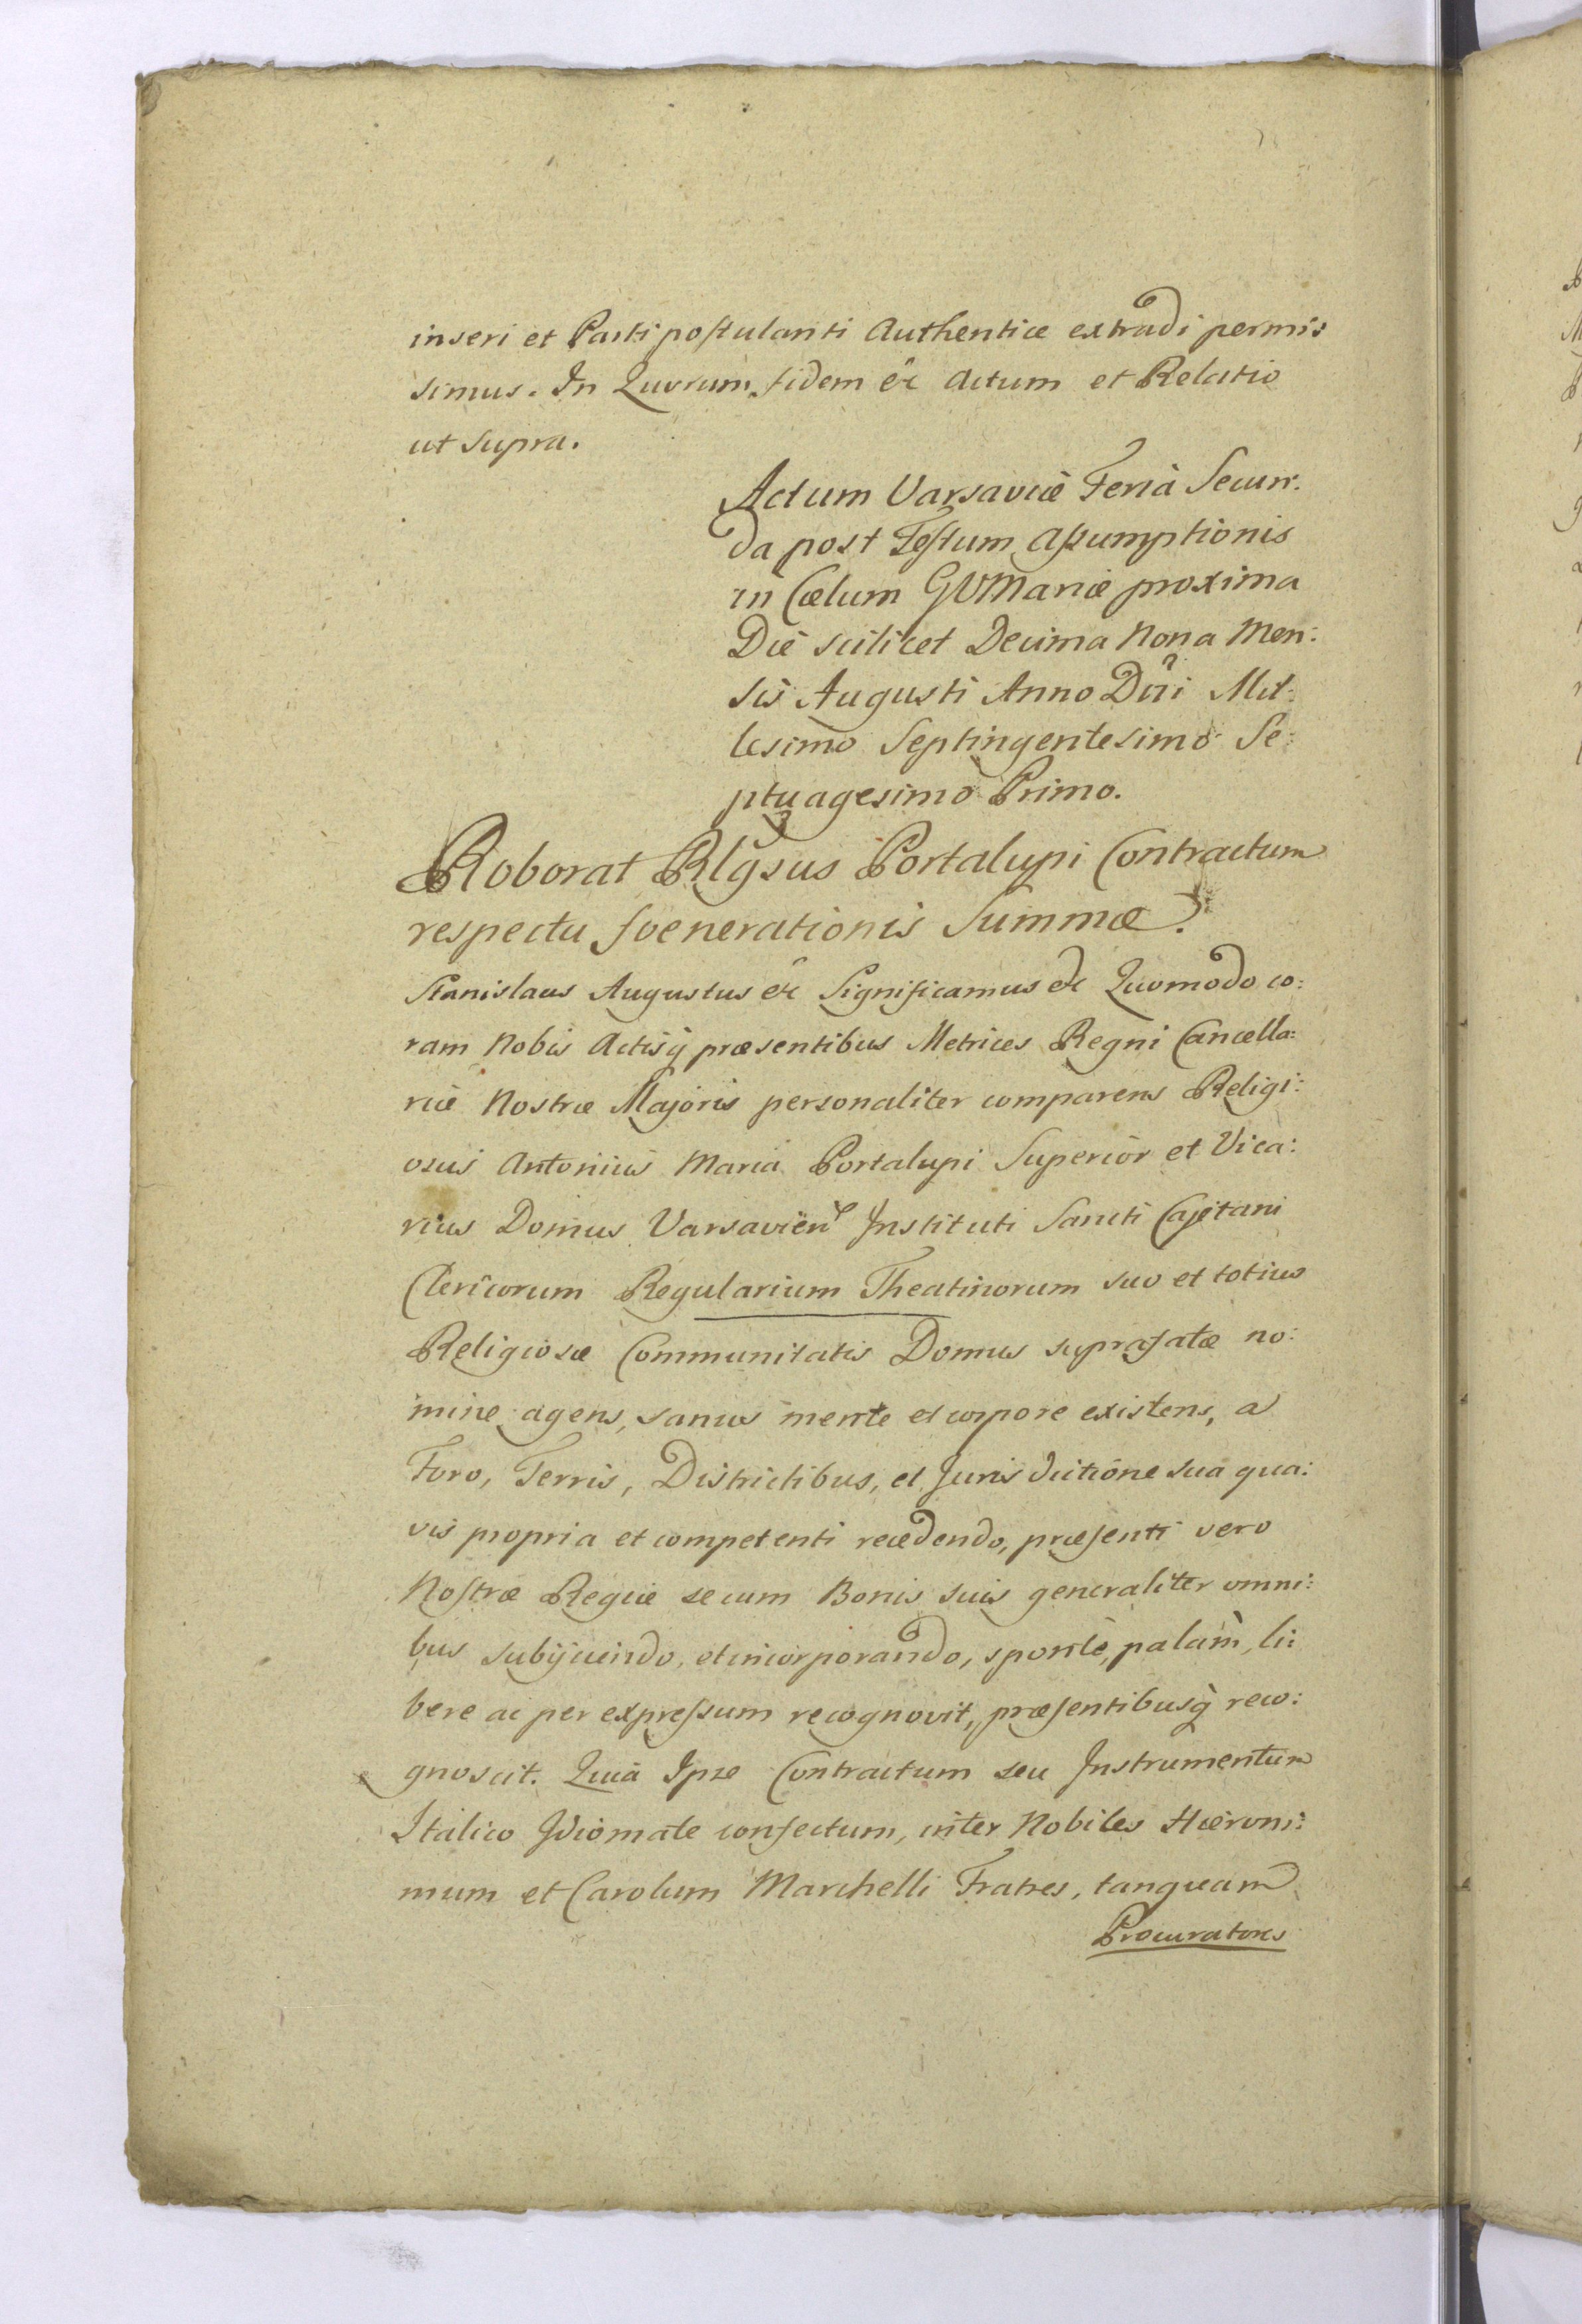 inseri et Parti postulanti Authentice extradi permis
simus. In Quorum fidem &c Actum et Relatio
ut supra.
Actum Varsaviæ Feriâ Secun:
da post Festum Assumptionis
in Cœlum GVMariæ proxima
Die scilicet Decima Nona Men:
sis Augusti Anno Dñi Mil:
lesimo Septingentesimo Se:
ptuagesimo Primo.
Roborat Rlgsus Portalupi Contractum
respectu foenerationis Summæ.
Stanislaus Augustus &c Significamus &c Quomodo co:
ram Nobis Actisq̀ præsentibus Metrices Regni Cancella:
riæ Nostræ Majoris personaliter comparens Religi:
osus Antonius Maria Portalupi Superior et Vica:
rius Domus Varsavien Instituti Sancti Cajetani
Clericorum Regularium Theatinorum suo et totius
Religiosæ Communitatis Domus suprafatæ no:
mine agens, sanus mente et corpore existens, a
Foro, Terris, Districtibus, et Jurisdictione sua qua:
vis propria et competenti recedendo, præsenti vero
Nostræ Regiæ se cum Bonis suis generaliter omni:
bus subijciendo, et incorporando, sponte, palàm, li:
bere ac per expressum recognovit, præsentibusq̀ reco:
gnoscit. Quia Ipse Contractum seu Instrumentum
Italico Idiomate confectum, inter Nobiles Hieroni:
mum et Carolum Marchelli Fratres, tanquam
Procuratores